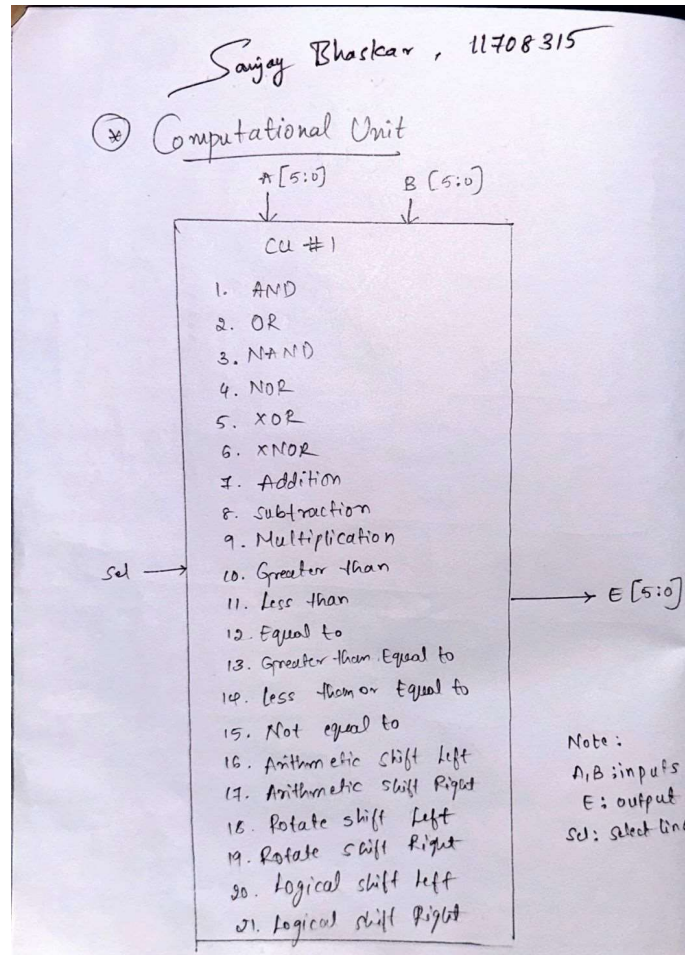 Sanjay Bhaskar, 11708315
* Computational Unit
A[5:0] B[5:0]
CU #1
1. AND
2. OR
3. NAND
4. NOR
5. XOR
6. XNOR
7. Addition
8. Subtraction
9. Multiplication
Sel
10. Greater than
E[5:0]
11. Less than
12. Equal to
13. Greater than Equal to
14. Less than or Equal to
15. Not equal to
16. Arithmetic shift Left
17. Arithmetic shift Right
18. Rotate shift Left
19. Rotate shift Right
20. Logical shift Left
21. Logical shift Right
Note:
A,B: inputs
E: output
Sel: select lin